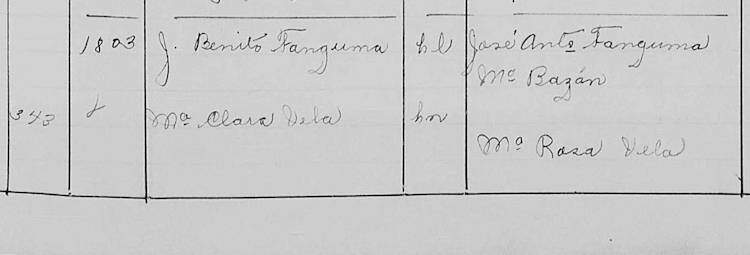 1803 J. Benito Fanguma hl José Anto Fanguma
Ma Bazán
343 Ma Clara Vela hn
Ma Rosa Vela